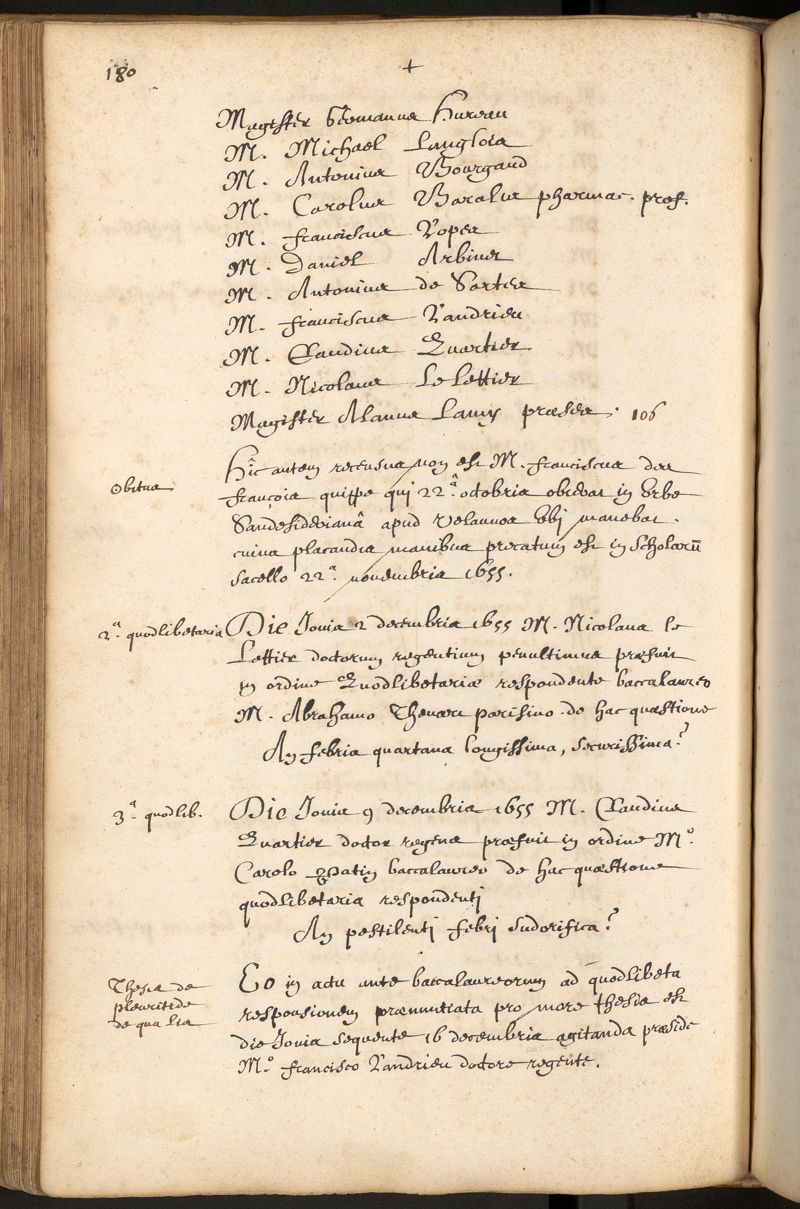 180
+
Magister Germanus Hureau
M. Michael Langlois
M. Antonius Bourgaud
M. Carolus Baralis pharmac. prof.
M. franciscus Lopes
M. Daniel Arbinet
M. Antonius de Sartes
M. franciscus Landrieu
M. Claudius Quartier
M. Nicolaus Le Lettier
Magister Alanus Lamy præses. 106
Obitus
Hîc autem recensus non est M. franciscus des
françois quippe qui 22.â octobris obierat in Urbe
Sandesiderianâ apud velaunos Ubi manebat.
cuius placandis manibus precatum est in Scholarū
sacello 22.a novembris 1655.
2.a quodlibetaria
Die Jovis 2 decembris 1655 M. Nicolaus le
Lettier doctorum regentium penultimus præfuit
in ordine Quodlibetariæ respondente baccalaureo
M. Abrahamo Thevart parisino. de hac quæstione
An febris quartana longissima, securissima?
3.a quodlib.
Die Jovis 9 decembris 1655 M. Claudius
Quartier doctor regens præfuit in ordine M.o
Carolo Patin baccalaureo de hac quæstione
quodlibetaria respondenti
An pestilenti febri sudorifica?
Thesis de
pleuritide
de qua lis
Eo in actu ante baccalaureorum ad quodlibeta
responsionem prænuntiata pro more thesis est
die Jovis sequente 16 decembris agitanda præside
M.o francisco Landrieu doctore regente.